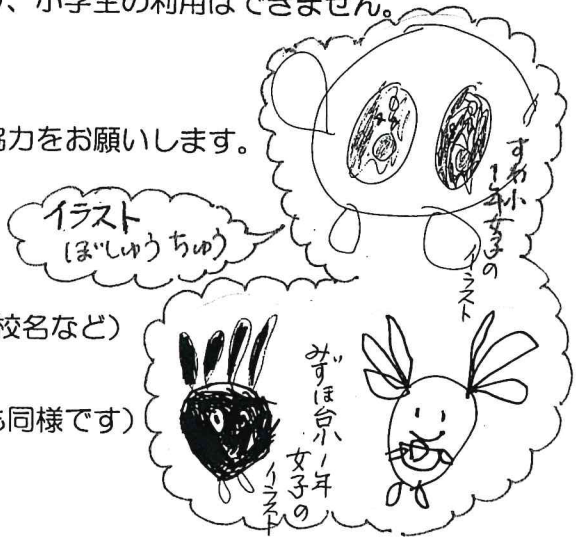 、小学生の利用はできません。
協力をお願いします。
イラスト
ぼしゅうちゅう
1年女子の
イラスト
校名など)
も同様です)
みずほ台小1年
女子の
イラスト